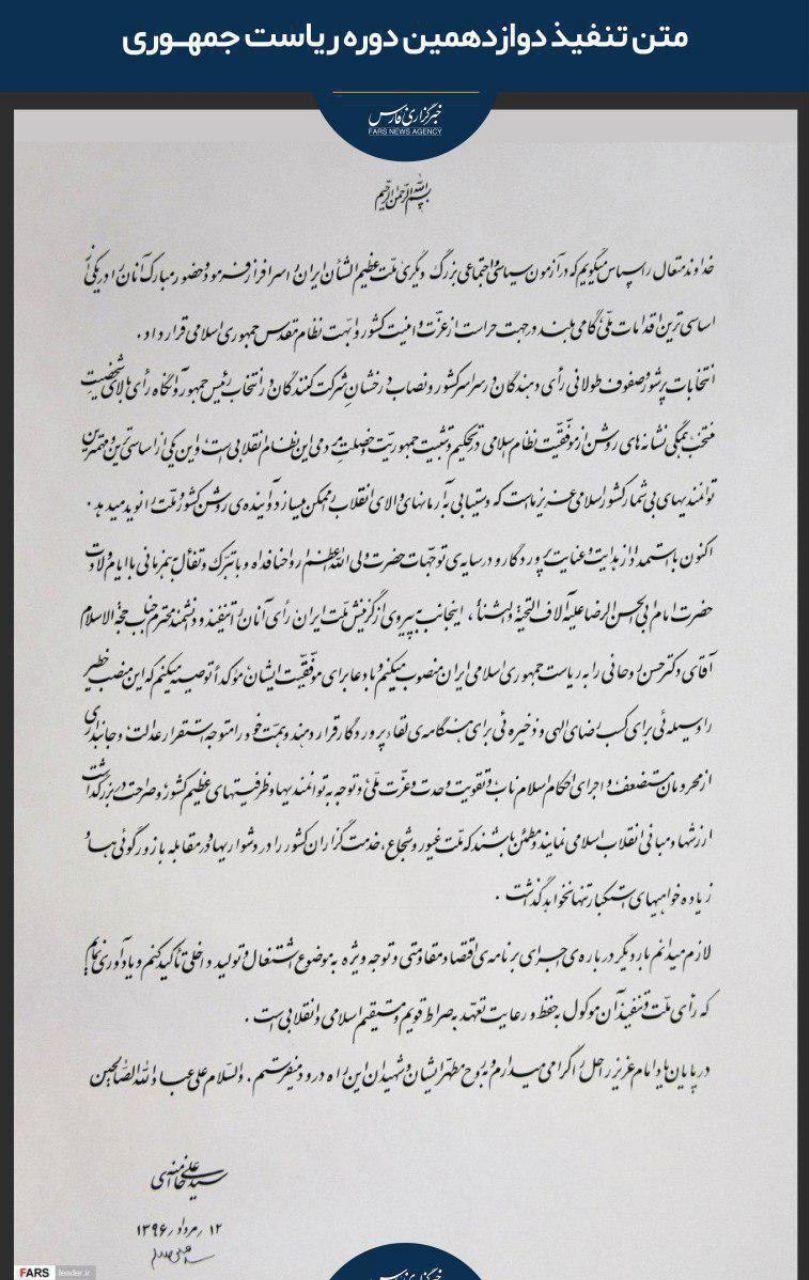 متن تنفیذ دوازدهمین دوره ریاست جمهوری
خبرگزاری فارس
FARS NEWS AGENCY
بسم الله الرحمن الرحیم
خداوند متعال را سپاس میگویم که در آزمون سیاسی و اجتماعی بزرگ دیگری ملت عظیم‌الشأن ایران را سرافراز فرمود و حضور مبارک آنان را در یکی از
اساسی‌ترین اقدامات ملّی گامی بلند در جهت حراست از عزّت و امنیت کشور و ابهت نظام مقدس جمهوری اسلامی قرار داد.
انتخابات پرشور و صفوف طولانی رأی دهندگان در سراسر کشور و نصاب درخشان شرکت کنندگان در انتخاب رئیس جمهور و آنگاه رأی بالای شخصیت
منتخب همگی نشانه‌های روشن از موفّقیت نظام اسلامی در تحکیم و تثبیت جمهوریّت و خصلت مردمی این نظام انقلابی است، و این یکی از اساسی‌ترین و مهمترین
توانمندیهای بی‌شمار کشور اسلامی عزیز ماست که دستیابی به آرمانهای والای انقلاب را ممکن میسازد و آینده‌ی روشن کشور و ملّت را نوید میدهد.
اکنون با استمداد از هدایت و عنایت پروردگار و در سایه‌ی توجّهات حضرت ولی الله الاعظم ارواحنا فداه و با تبرّک و تفأل به همزمانی با ایام ولادت
حضرت امام ابی الحسن الرضا علیه آلاف التحیة والثناء، اینجانب به پیروی از گزینش ملّت ایران رأی آنان را تنفیذ و دانشمند محترم جناب حجةالاسلام
آقای دکتر حسن روحانی را به ریاست جمهوری اسلامی ایران منصوب میکنم و با دعا برای موفّقیّت ایشان مؤکداً توصیه میکنم که این منصب خطیر
را وسیله‌ئی برای کسب رضای الهی و ذخیره‌ئی برای هنگامه‌ی لقاء پروردگار قرار دهند و همّت خود را متوجه استقرار عدالت و جانبداری
از محرومان مستضعف و اجرای احکام اسلام ناب و تقویت وحدت و عزّت ملّی و توجه به توانمندیها و ظرفیتهای عظیم کشور و صراحت در بزرگداشت
ارزشها و مبانی انقلاب اسلامی نمایند و مطمئن باشند که ملّت غیور و شجاع، خدمت‌گزاران کشور را در دشواریها و در مقابله با زورگوئی‌ها و
زیاده خواهیهای استکبار تنها نخواهد گذاشت.
لازم میدانم بار دیگر درباره‌ی اجرای برنامه‌ی اقتصاد مقاومتی و توجه ویژه به موضوع اشتغال و تولید داخلی تأکید کنم و یادآوری نمایم
که رأی ملّت و تنفیذ آن موکول به حفظ و رعایت تعهّد به صراط قویم و مستقیم اسلامی و انقلابی است.
در پایان یاد امام عزیز راحل را گرامی میدارم و به روح مطهّر ایشان و شهیدان این راه درود میفرستم. والسّلام علی عباد الله الصالحین
سیدعلی خامنه‌ای
۱۲/مرداد/۱۳۹۶
خبرگزاری فارس
FARS
leader.ir